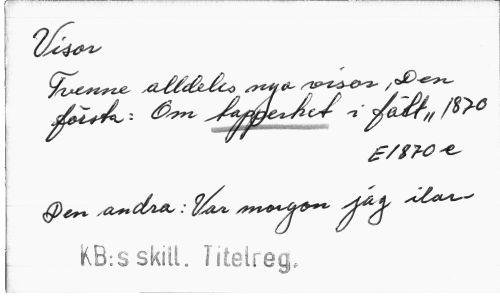 Visor
Tvenne alldeles nya visor, Den
första: Om tapperhet i fält,, 1870
E1870 e
Den andra: Var morgon jag ilar
KB:s skill. Titelreg.